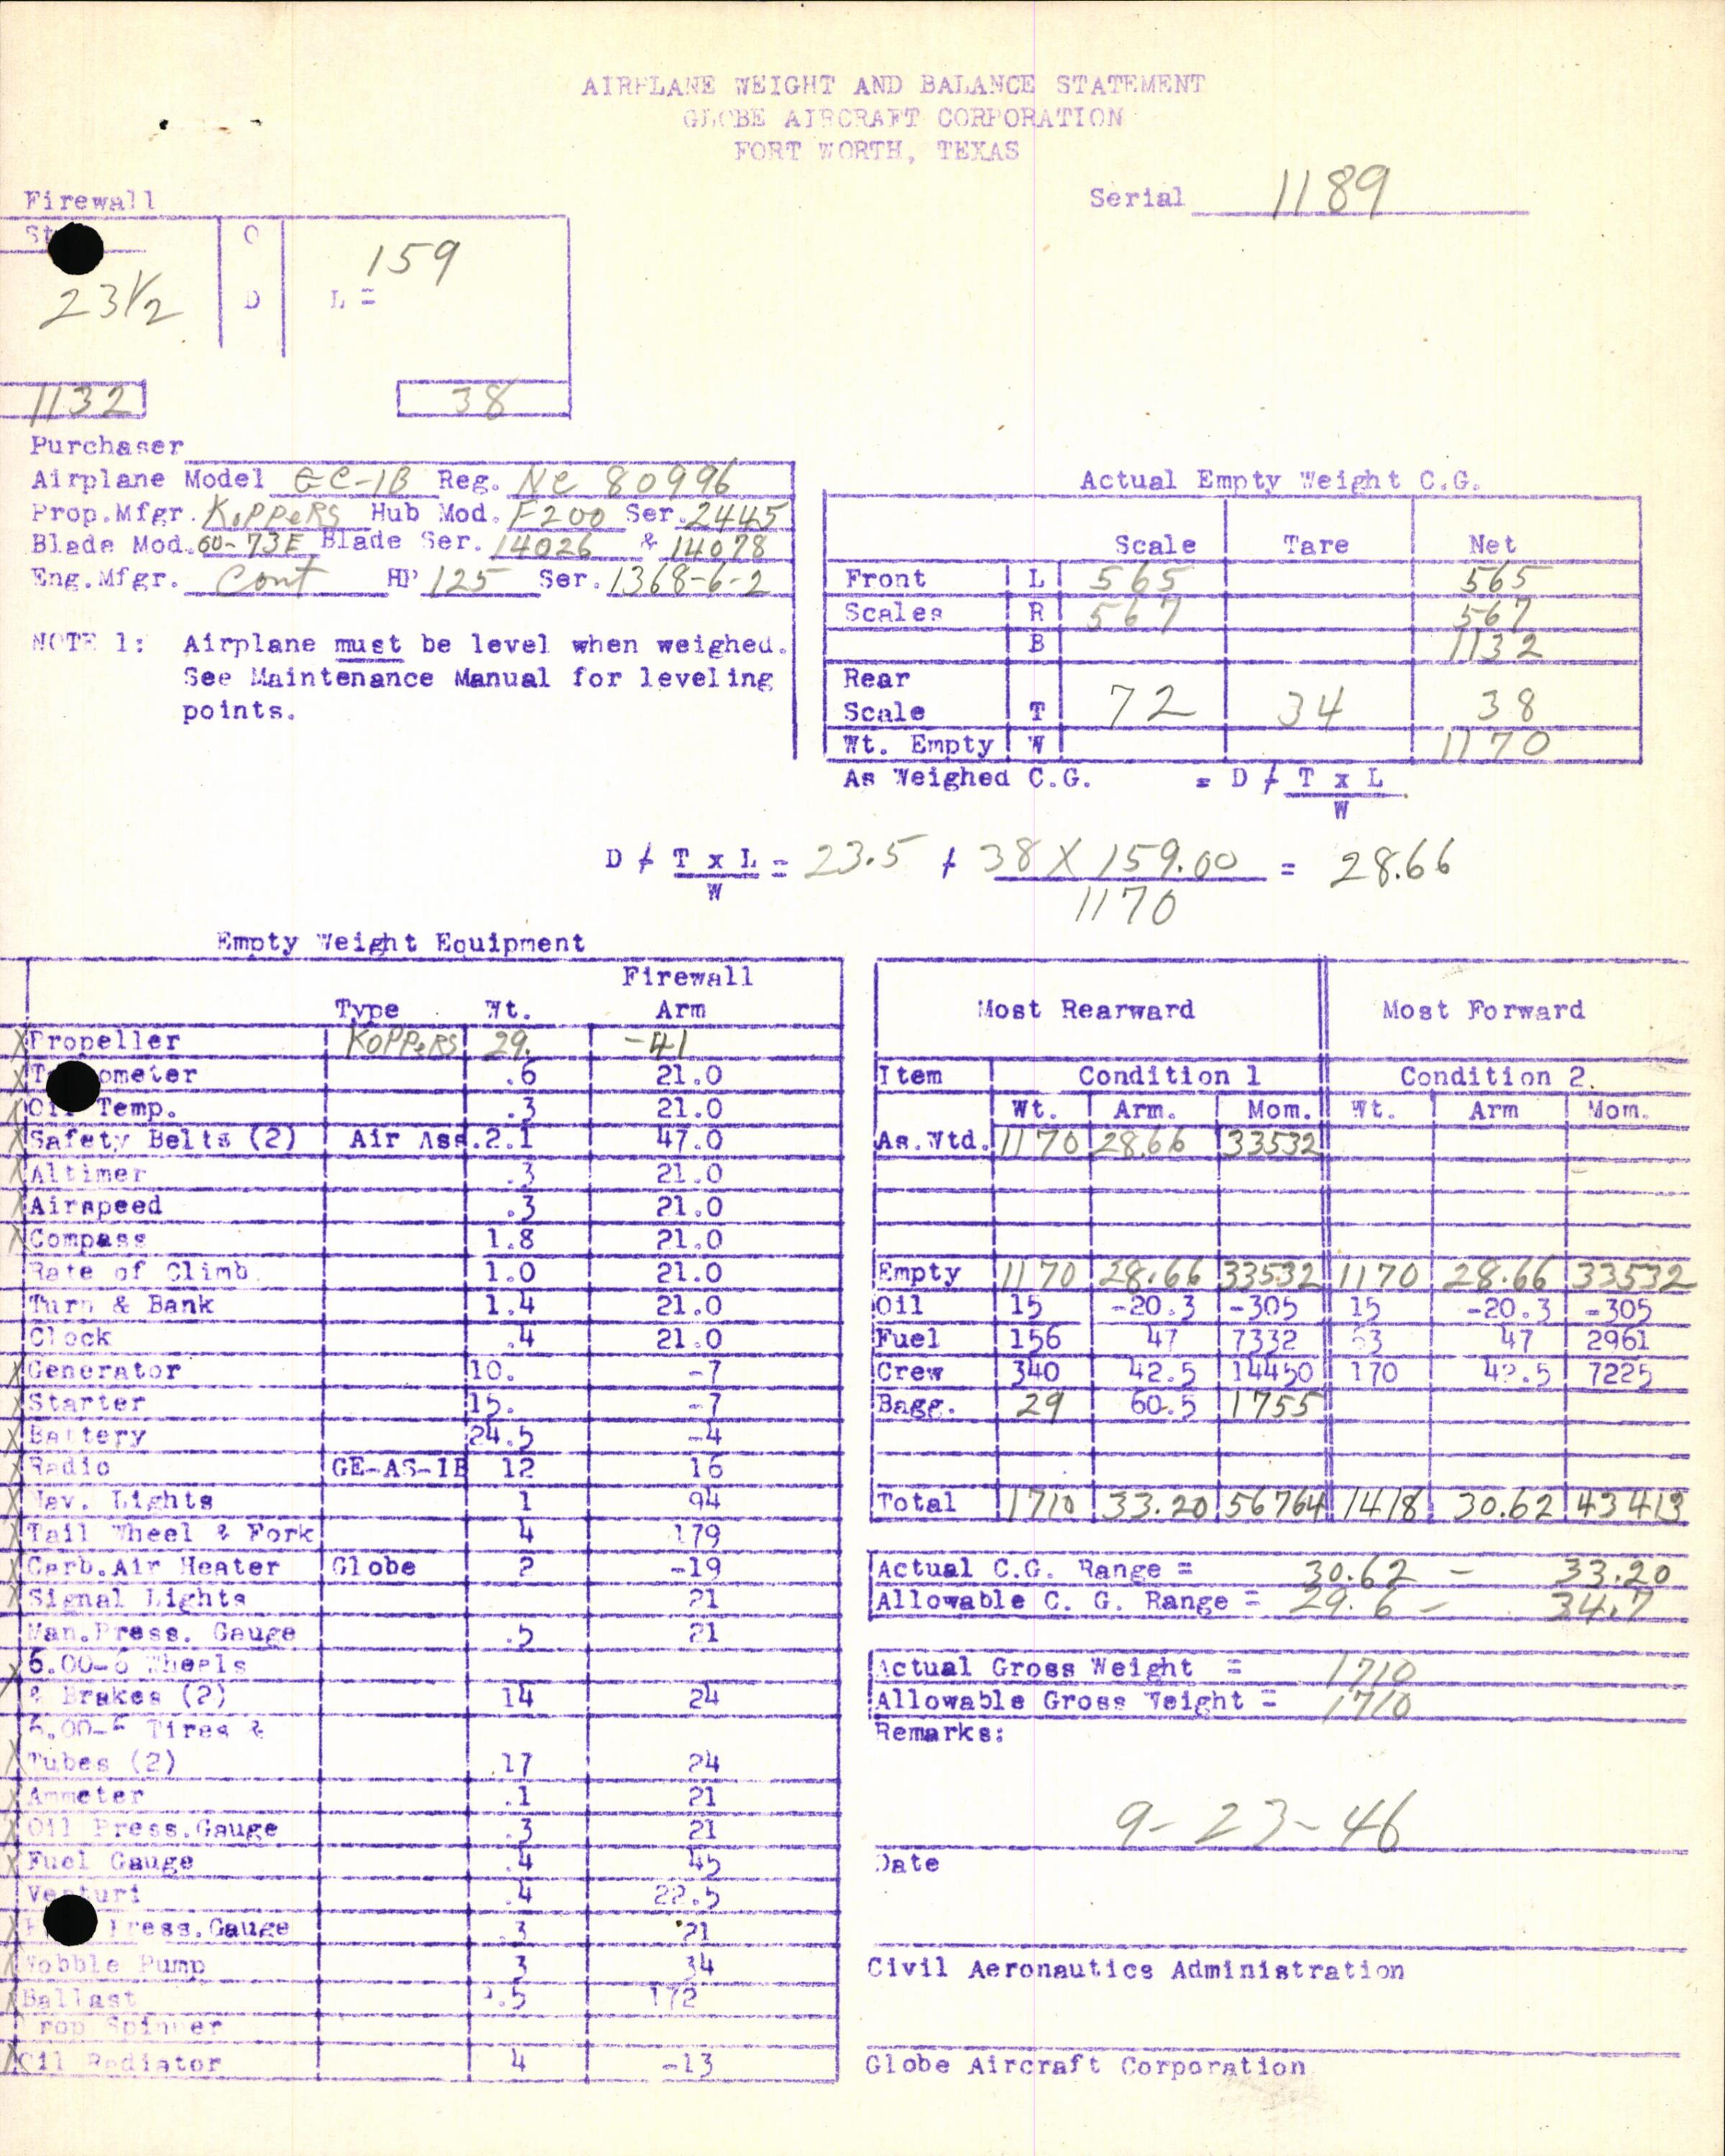 AIRPLANE WEIGHT AND BALANCE STATEMENT
GLOBE AIRCRAFT CORPORATION
FORT WORTH, TEXAS
Serial 1189
Firewall
St
C
159
23 1/2 D L =
1132 38
Purchaser
Airplane Model GC-1B Reg. NC 80996
Prop.Mfgr. KOPPERS Hub Mod. F200 Ser. 2445
Blade Mod. 00-73E Blade Ser. 14026 & 14078
Eng.Mfgr. Cont HP 125 Ser. 1368-6-2
NOTE 1: Airplane must be level when weighed.
See Maintenance Manual for leveling
points.
Actual Empty Weight C.G.
Scale Tare Net
Front L 565 565
Scales R 567 567
B 1132
Rear
Scale T 72 34 38
Wt. Empty W 1170
As Weighed C.G. = D / T x L
W
D / T x L = 23.5 + 38 X 159.00 = 28.66
W 1170
Empty Weight Equipment
Firewall
Type Wt. Arm
X Propeller KOPPERS 29. -41
X T ometer .6 21.0
X Oil Temp. .3 21.0
X Safety Belts (2) Air Ass. 2.1 47.0
X Altimer .3 21.0
X Airspeed .3 21.0
X Compass 1.8 21.0
Rate of Climb 1.0 21.0
Turn & Bank 1.4 21.0
Clock .4 21.0
X Generator 10. -7
X Starter 15. -7
X Battery 24.5 -4
X Radio GE-AS-1B 12 16
X Nav. Lights 1 94
X Tail Wheel & Fork 4 179
X Carb.Air Heater Globe 2 -19
X Signal Lights 21
Man.Press. Gauge .5 21
X 6.00-6 Wheels
& Brakes (2) 14 24
6.00-6 Tires &
X Tubes (2) 17 24
X Ammeter .1 21
X Oil Press.Gauge .3 21
X Fuel Gauge .4 45
Venturi .4 22.5
X Press.Gauge .3 21
X Wobble Pump 3 34
X Ballast .5 172
Prop Spinner
X Oil Radiator 4 -13
Most Rearward Most Forward
Item Condition 1 Condition 2.
Wt. Arm. Mom. Wt. Arm Mom.
As.Wtd. 1170 28.66 33532
Empty 1170 28.66 33532 1170 28.66 33532
Oil 15 -20.3 -305 15 -20.3 -305
Fuel 156 47 7332 63 47 2961
Crew 340 42.5 14450 170 42.5 7225
Bagg. 29 60.5 1755
Total 1710 33.20 56764 1418 30.62 43413
Actual C.G. Range = 30.62 - 33.20
Allowable C. G. Range = 29.6 - 34.7
Actual Gross Weight = 1710
Allowable Gross Weight = 1710
Remarks:
9-23-46
Date
Civil Aeronautics Administration
Globe Aircraft Corporation